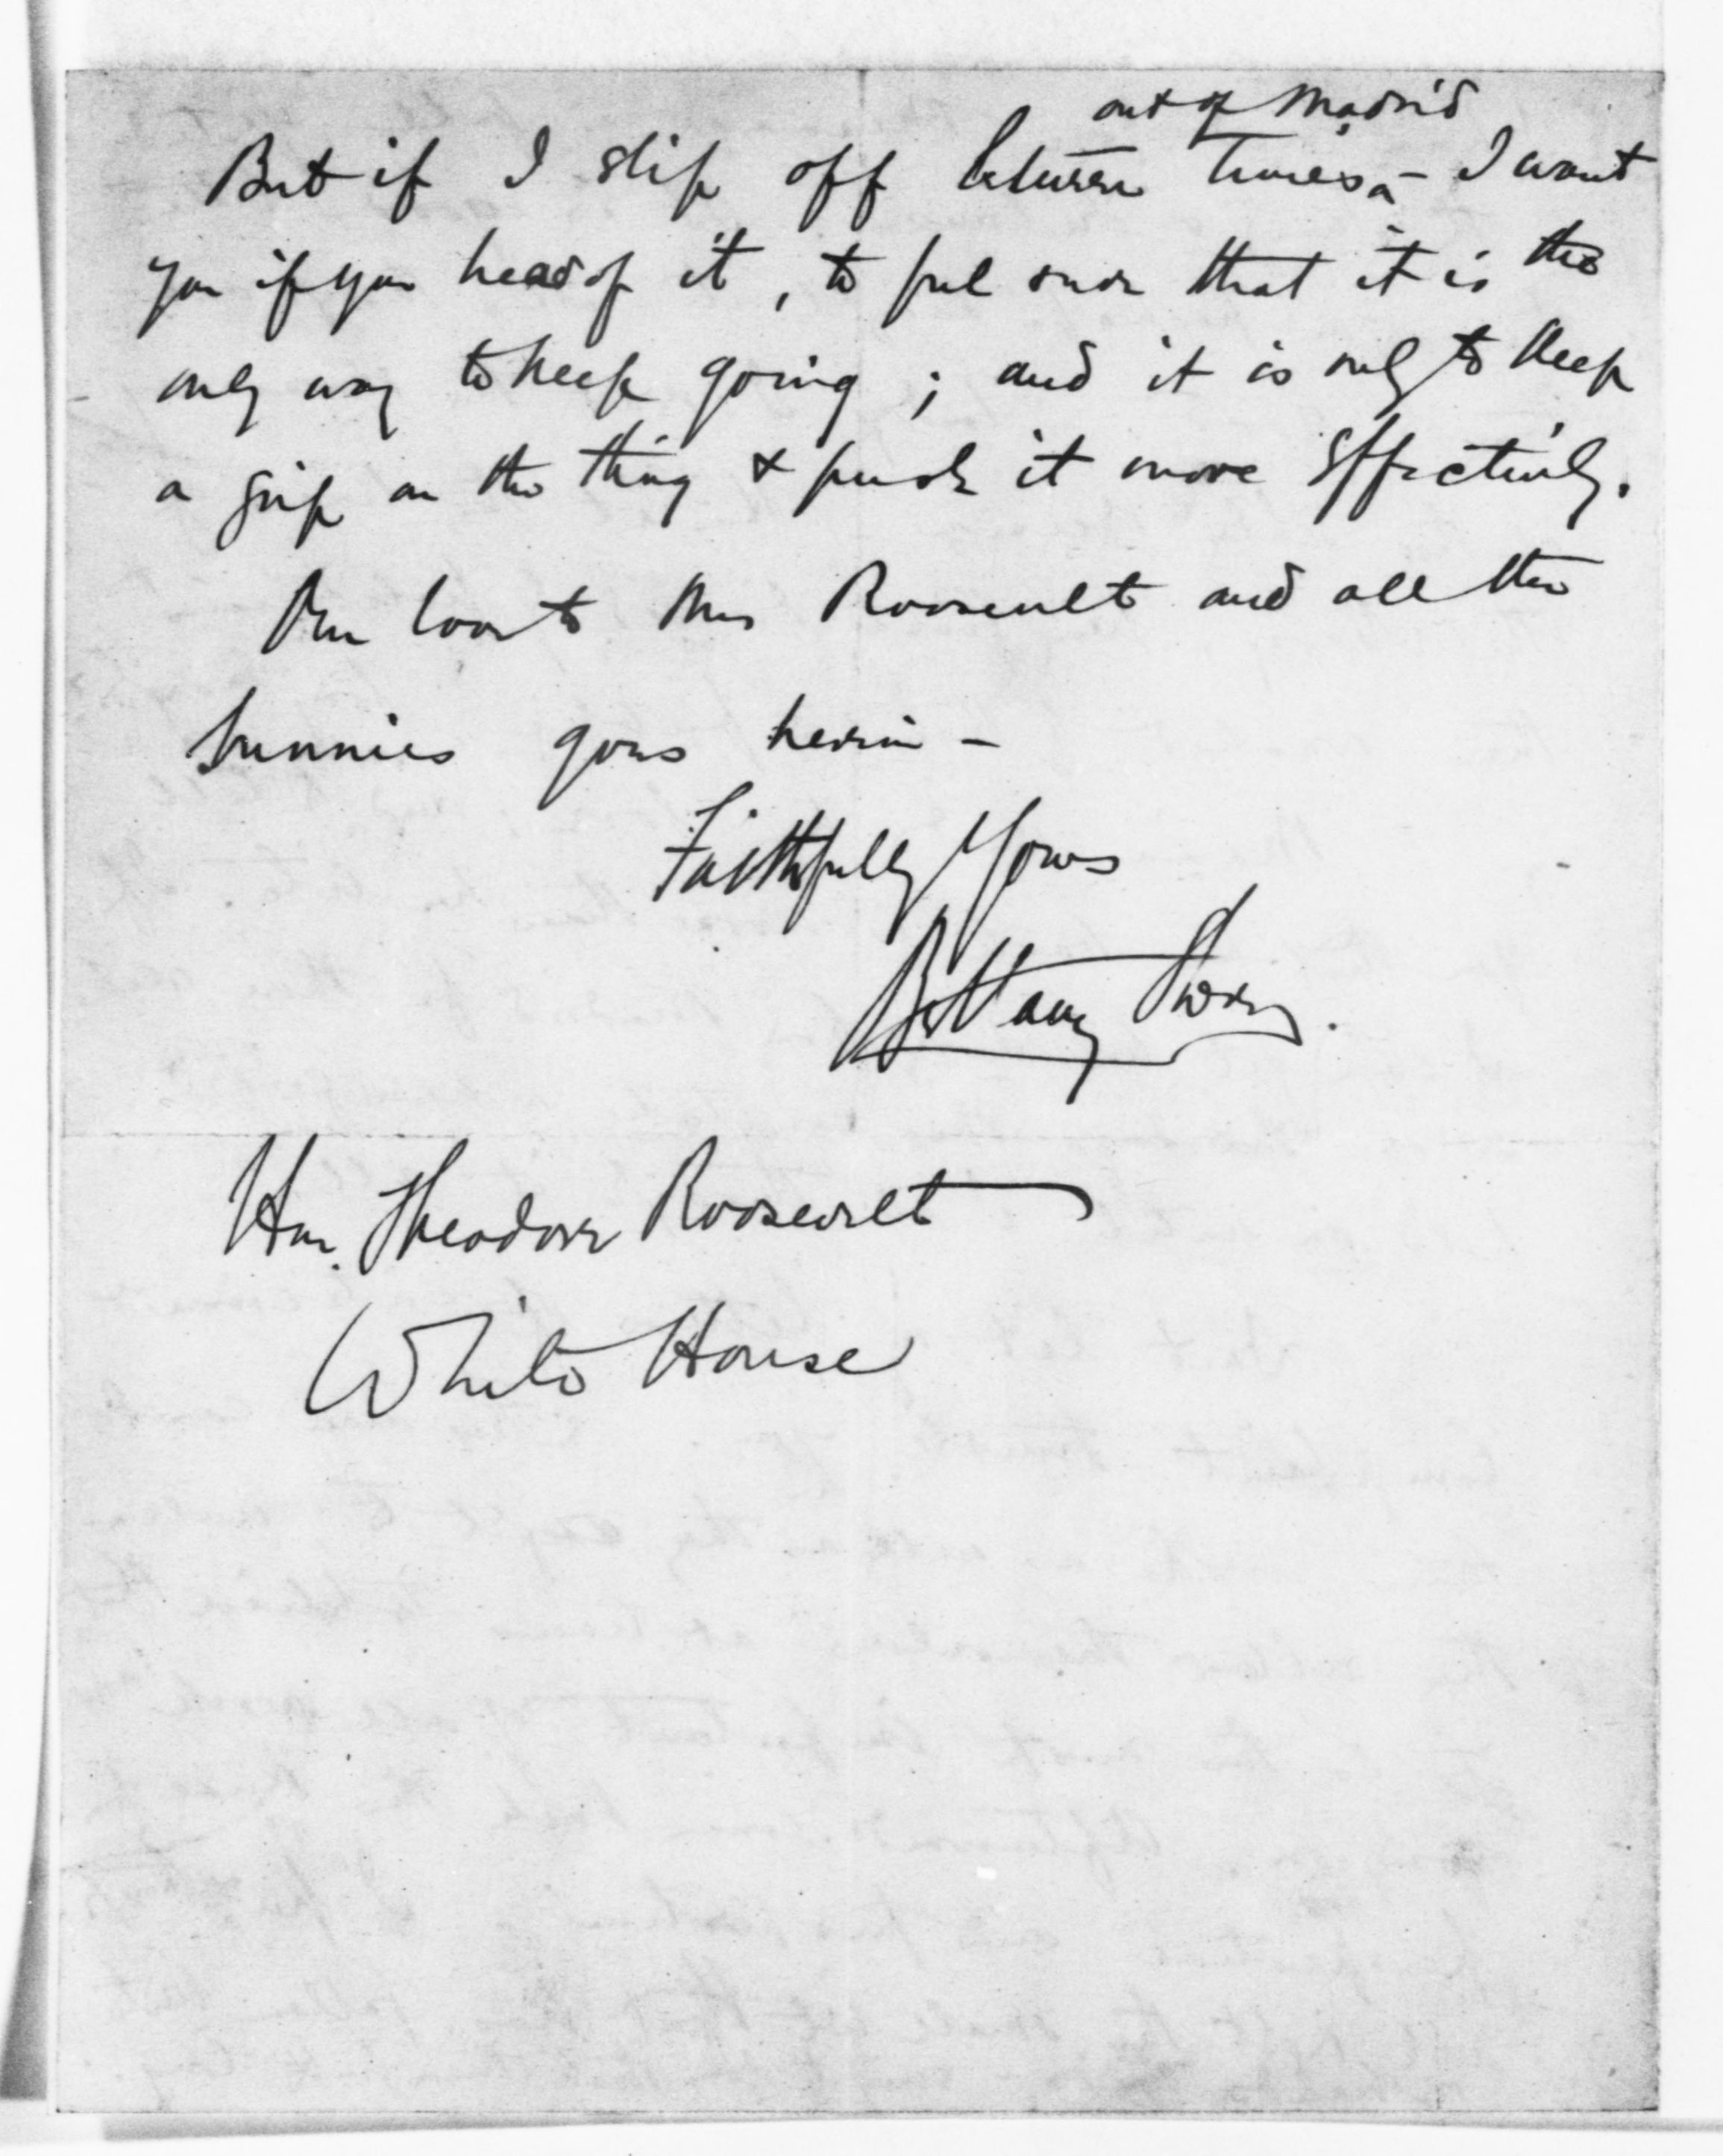 out of Madrid
But if I slip off between times - I want
you if you hear of it, to feel sure that it is the
only way to keep going; and it is only to keep
a grip on the thing & push it more effectively.
Our love to Mrs Roosevelt and all the
bunnies goes herein -
Faithfully Yours
Bellamy Storer.
Hon. Theodore Roosevelt
White House